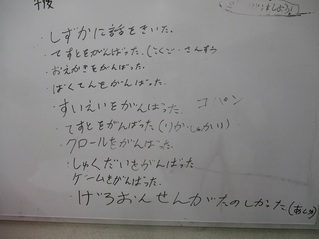 ・しずかに話をきいた。
・てすとをがんばった。(こくご・さんすう
・おえかきをがんばった。
・ばくてんをがんばった。
・すいえいをがんばった。
・てすとをがんばった(りか・しゃかい)
・クロールをがんばった。
・しゃくだいをがんばった
ゲームをがんばった。
・げろおんせんがたのしかった